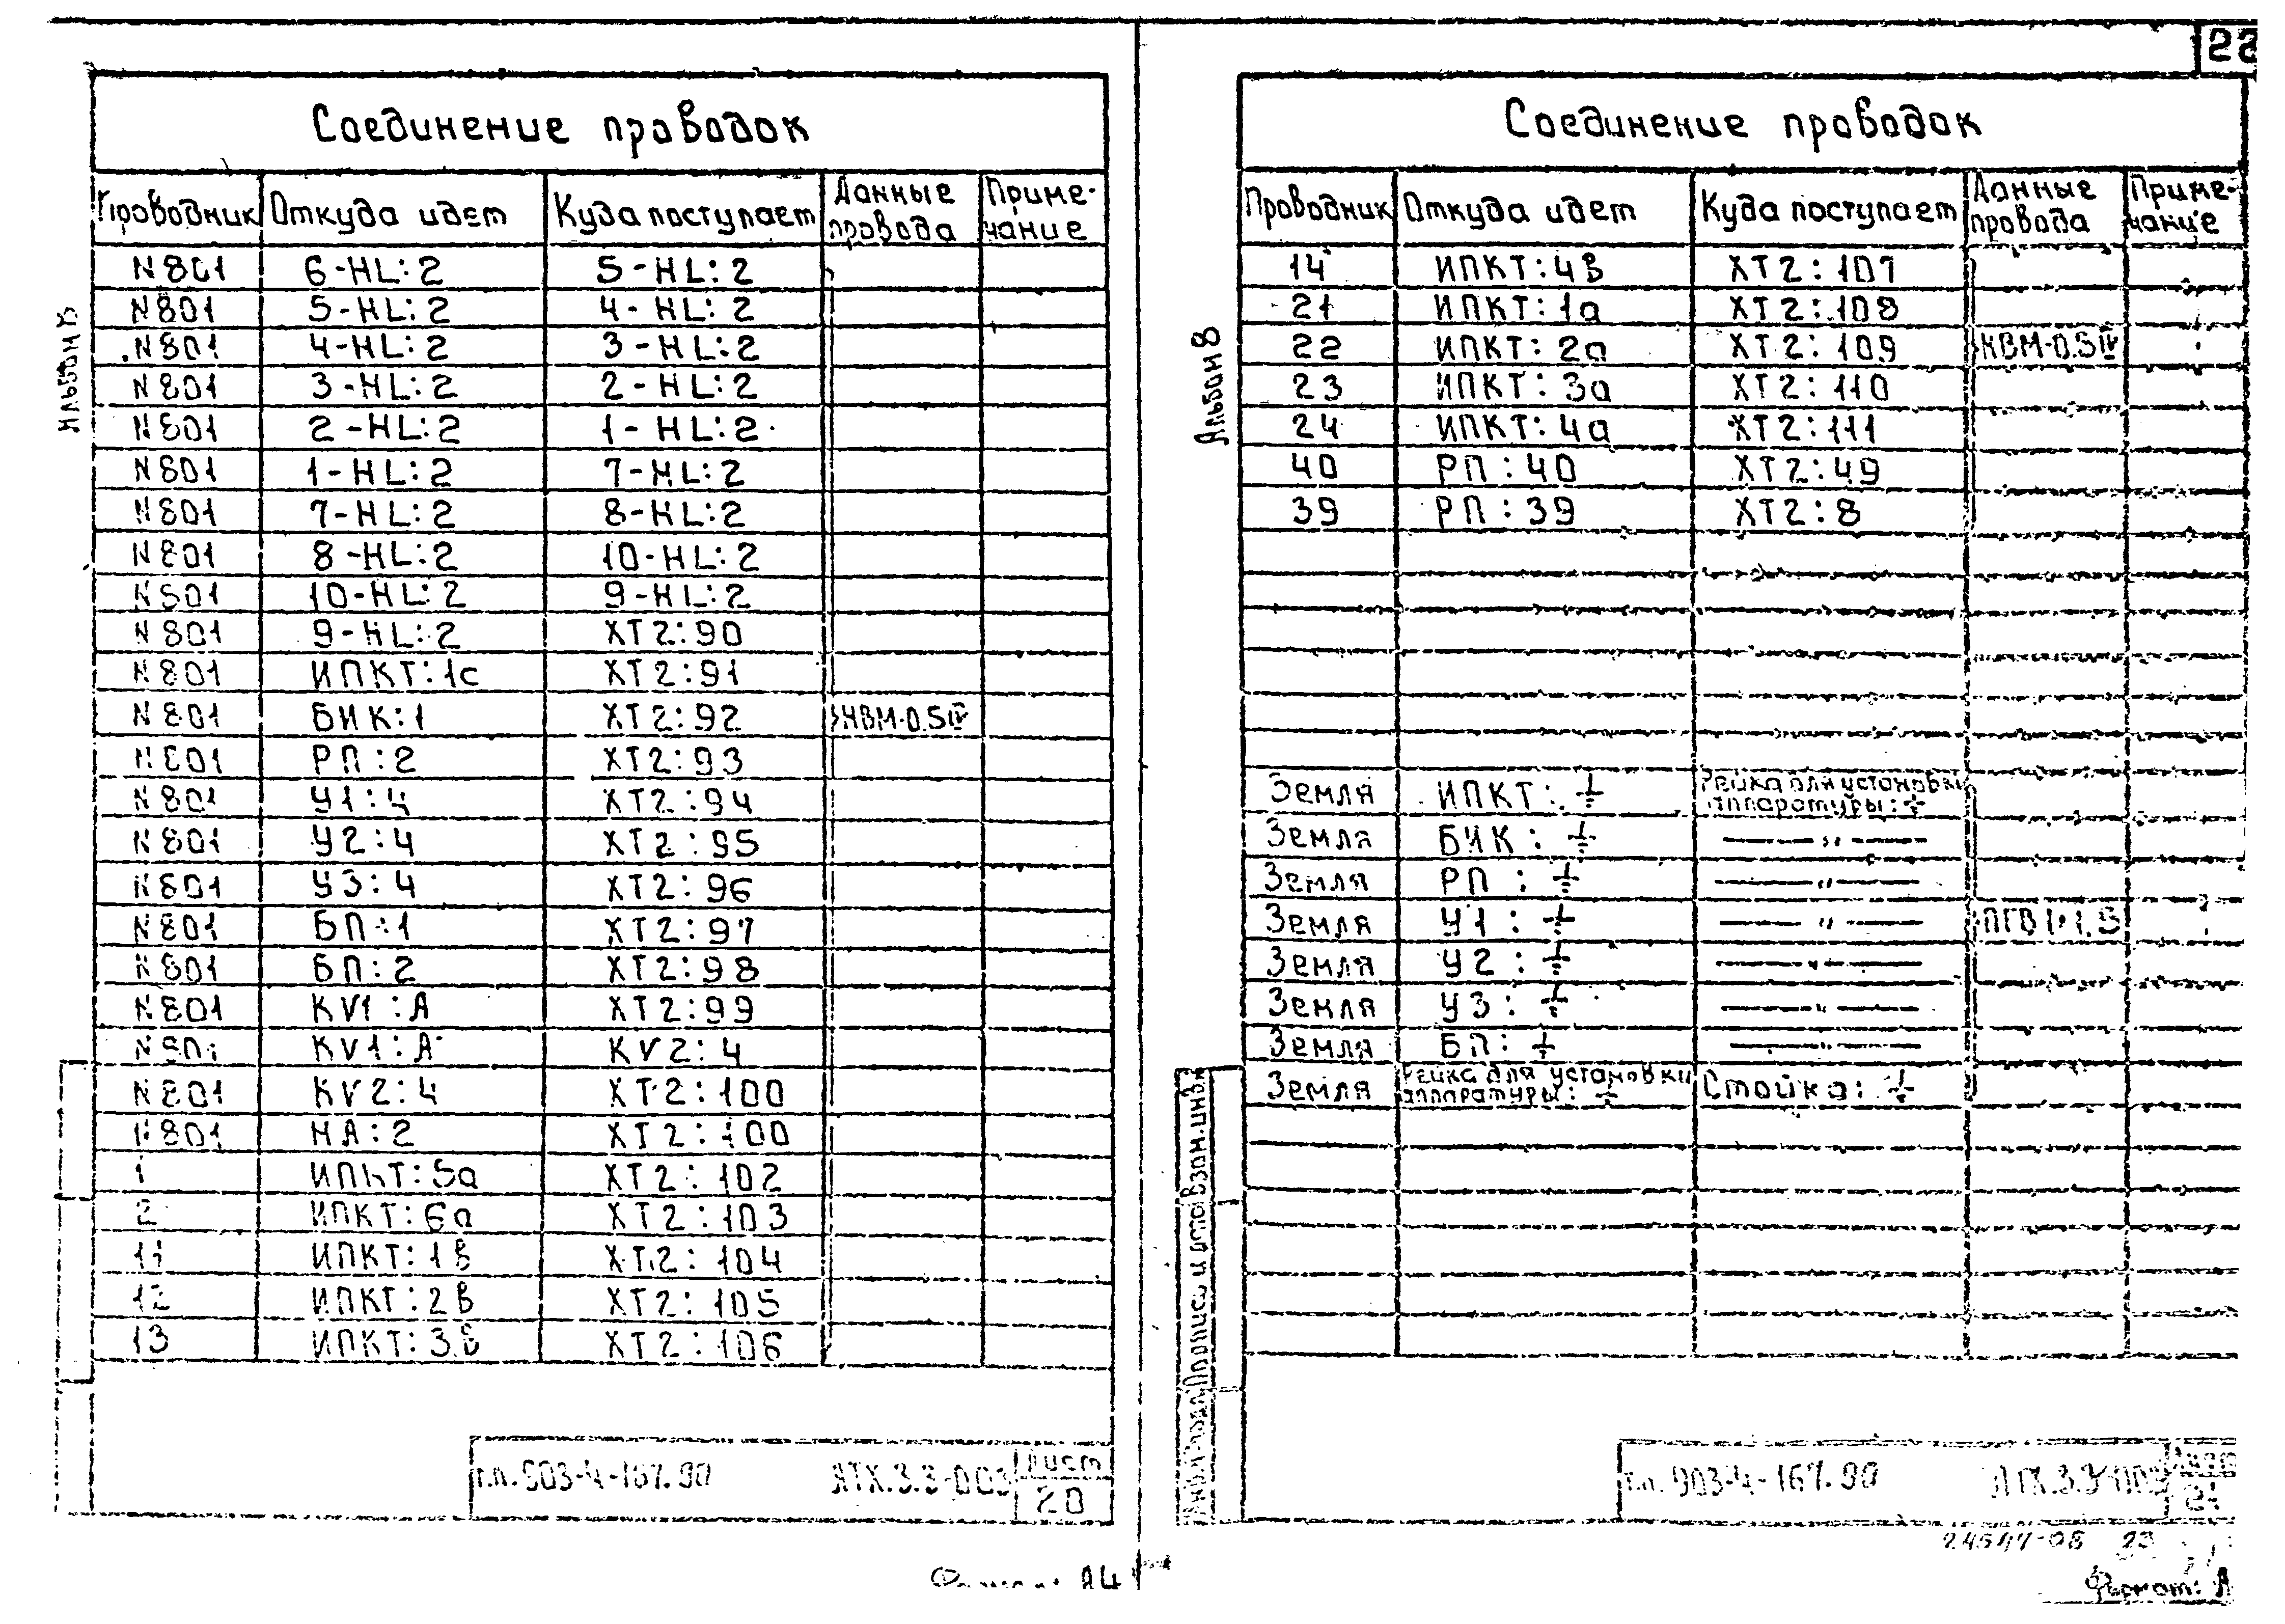 22
Соединение проводок
Проводник Откуда идет Куда поступает Данные провода Приме-чание
N801 6-HL:2 5-HL:2
N801 5-HL:2 4-HL:2
N801 4-HL:2 3-HL:2
N801 3-HL:2 2-HL:2
N801 2-HL:2 1-HL:2
N801 1-HL:2 7-HL:2
N801 7-HL:2 8-HL:2
N801 8-HL:2 10-HL:2
N801 10-HL:2 9-HL:2
N801 9-HL:2 ХТ2:90
N801 ИПКТ:1с ХТ2:91
N801 БИК:1 ХТ2:92 НВМ-0.5IV
N801 РП:2 ХТ2:93
N801 У1:4 ХТ2:94
N801 У2:4 ХТ2:95
N801 У3:4 ХТ2:96
N801 БП:1 ХТ2:97
N801 БП:2 ХТ2:98
N801 KV1:А ХТ2:99
N801 KV1:А KV2:4
N801 KV2:4 ХТ2:100
N801 НА:2 ХТ2:100
1 ИПКТ:5а ХТ2:102
2 ИПКТ:6а ХТ2:103
11 ИПКТ:1В ХТ2:104
12 ИПКТ:2В ХТ2:105
13 ИПКТ:3В ХТ2:106
Альбом 8
т.п. 903-4-167.90 АТХ.3.3-003 Лист
20
А4
Соединение проводок
Проводник Откуда идет Куда поступает Данные провода Приме-чание
14 ИПКТ:4В ХТ2:107
21 ИПКТ:1а ХТ2:108
22 ИПКТ:2а ХТ2:109 НВМ-0.5IV
23 ИПКТ:3а ХТ2:110
24 ИПКТ:4а ХТ2:111
40 РП:40 ХТ2:49
39 РП:39 ХТ2:8
Земля ИПКТ:⏚ Рейка для установки
аппаратуры:⏚
Земля БИК:⏚ —〃—
Земля РП:⏚ —〃—
Земля У1:⏚ —〃— ПГВ 1×1.5
Земля У2:⏚ —〃—
Земля У3:⏚ —〃—
Земля БП:⏚ —〃—
Земля Рейка для установки
аппаратуры:⏚ Стойка:⏚
Альбом 8
Подпись и дата Взам.инв.
т.п. 903-4-167.90 АТХ.3.3-003 Лист
21
24547-08 23
Формат: А